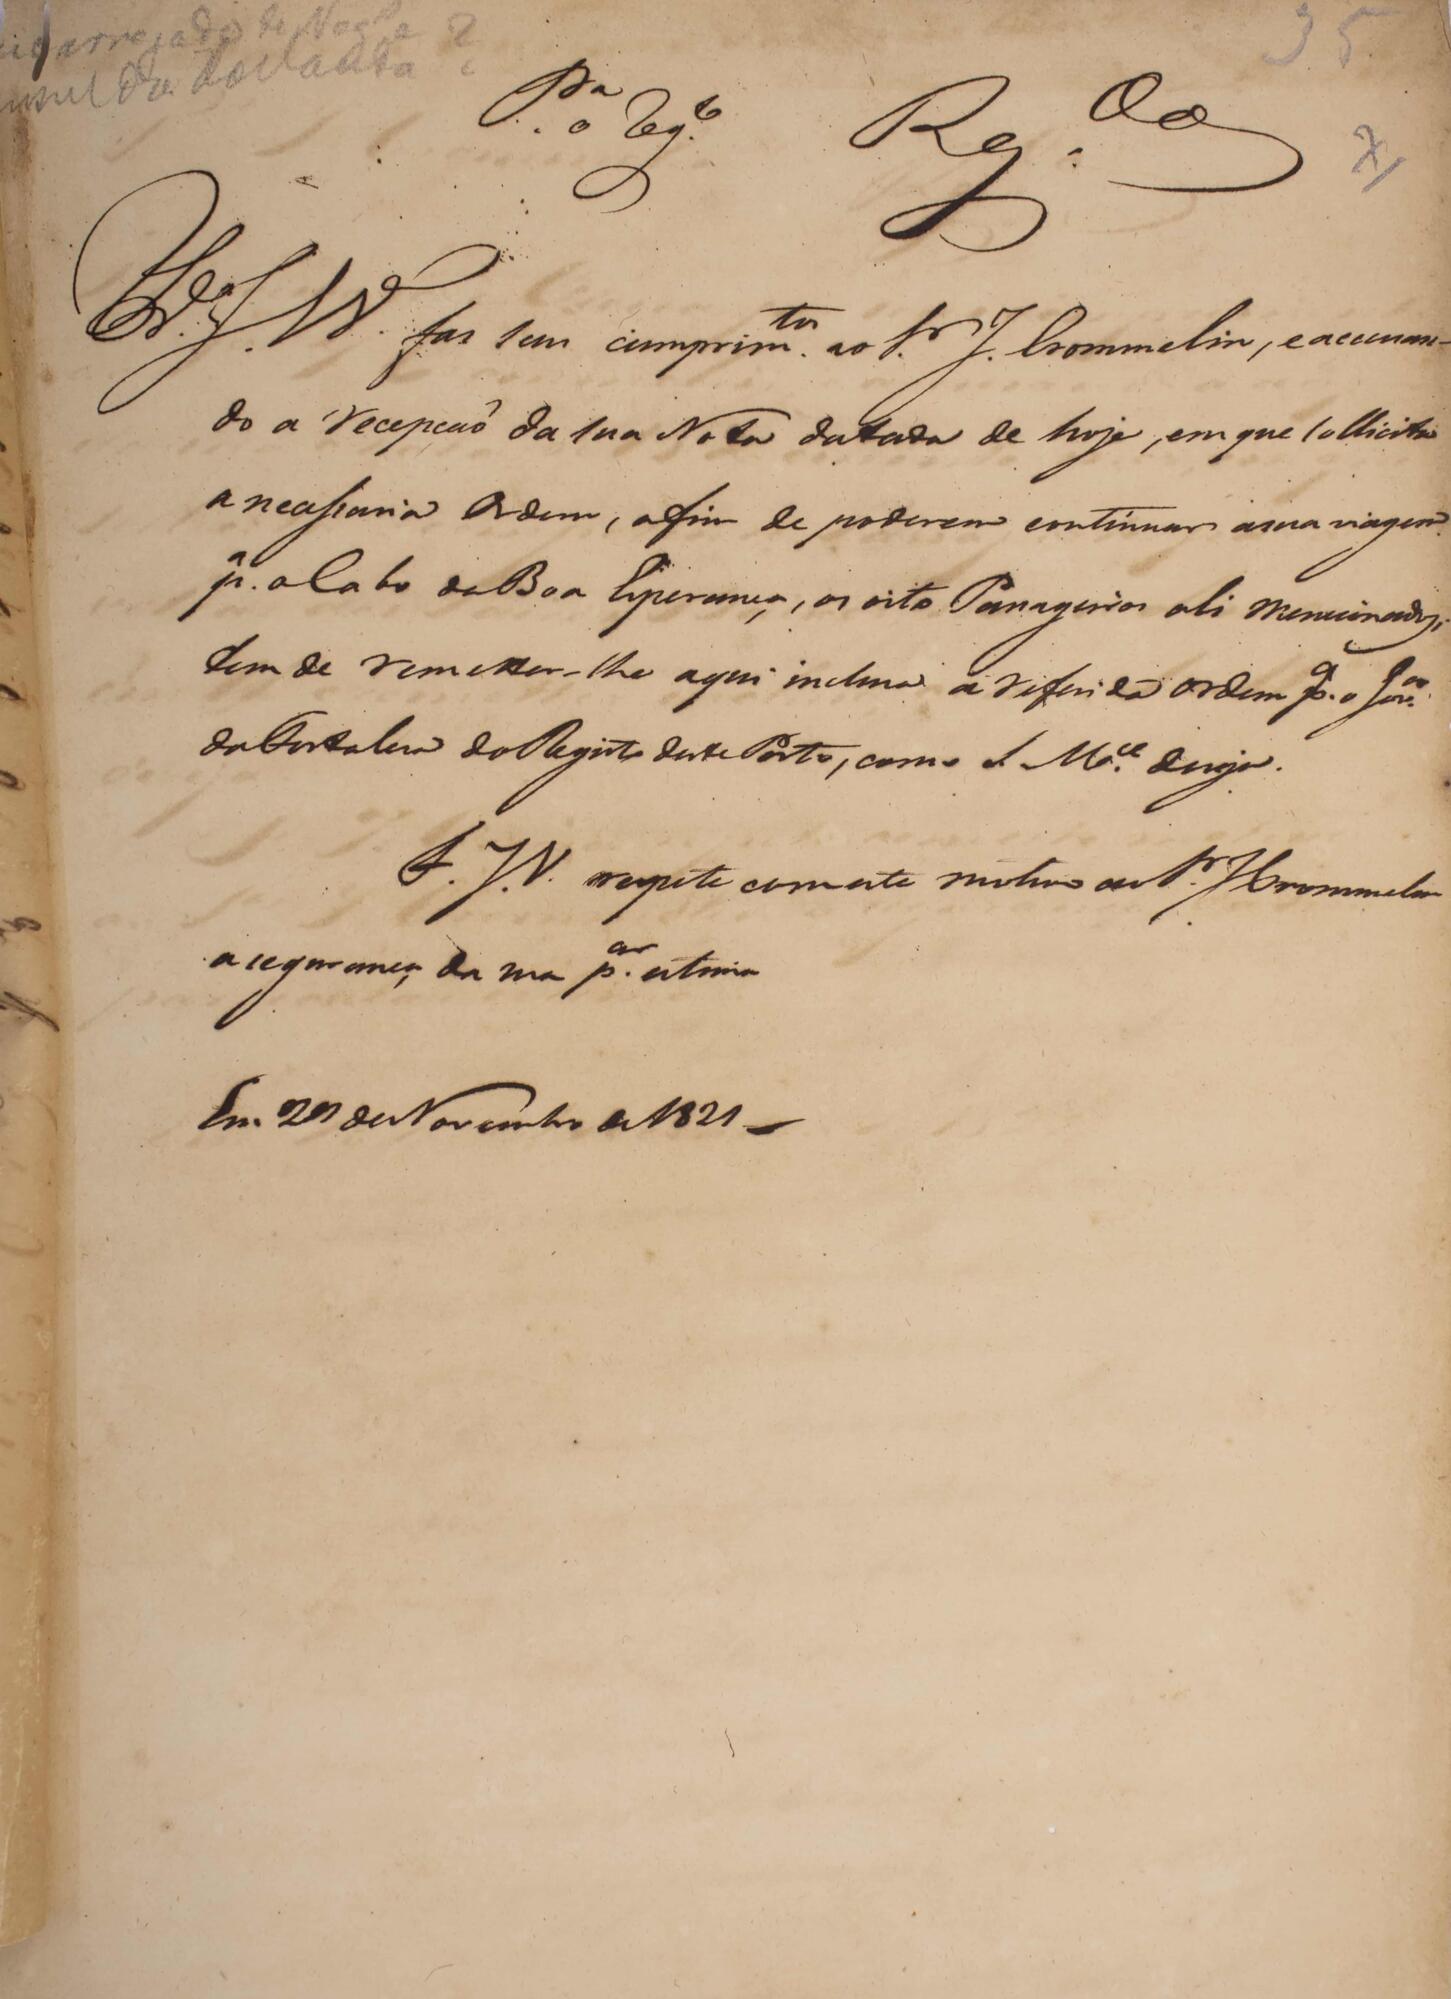 carregado de Neg.s ?
Consul da Hollanda ?
35
P.a o Reg.to
Reg.do
F. J. V. faz seus cumprim.tos ao S.r J. Crommelin, e accusan-
do a recepçaõ da sua Nota datada de hoje, em que sollicita
a necessaria Ordem, afim de poderem continuar a sua viagem
p.a o Cabo da Boa Esperança, os oito Passageiros ali mencionados,
tem de remetter-lhe aqui inclusa a referida ordem p.a o Gov.or
da Fortaleza do Registo deste Porto, como S. M.ce deseja.
F. J. V. repete com este motivo ao S.r J. Crommelin
a segurança da sua p.ar estima
Em 29 de Novembro de 1821